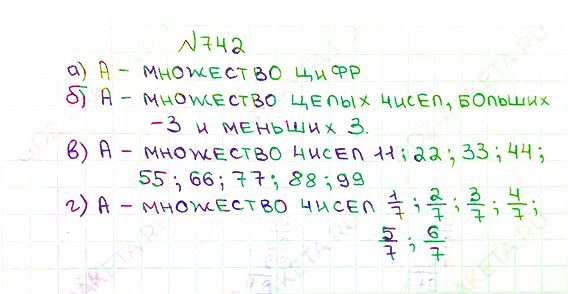 №742
а) А - множество цифр
б) А - множество целых чисел, больших
-3 и меньших 3.
в) А - множество чисел 11; 22; 33; 44;
55; 66; 77; 88; 99
г) А - множество чисел 1/7; 2/7; 3/7; 4/7;
5/7; 6/7